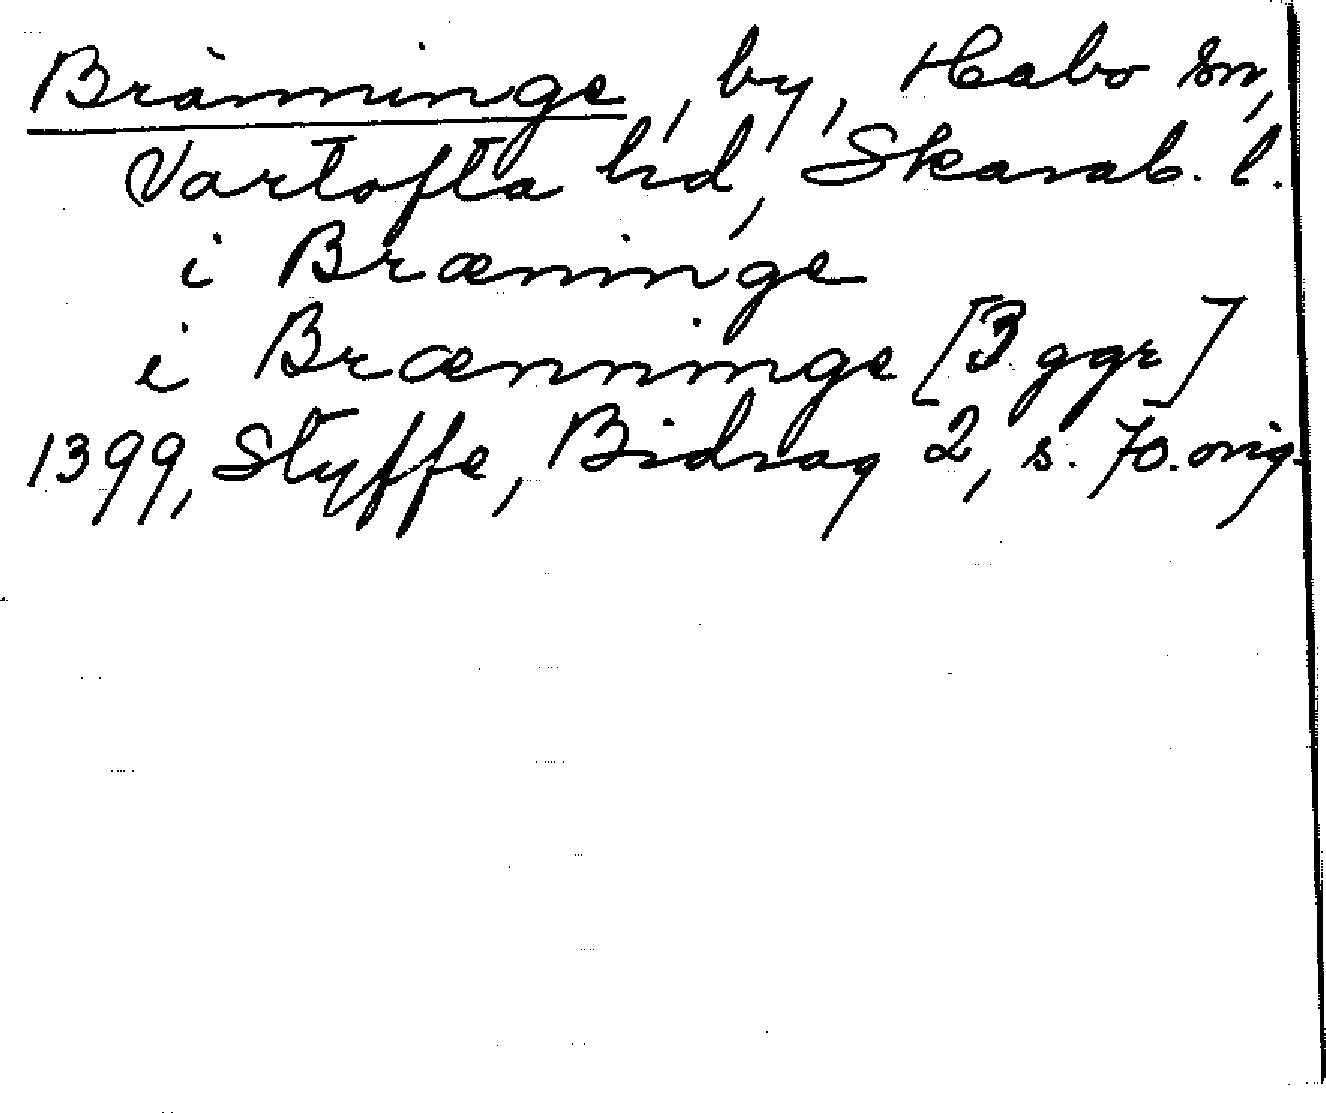 Bränninge, by, Habo sn,
Vartofta hd, Skarab. l.
i Bræninge
i Brænninge [3 ggr]
1399, Styffe, Bidrag 2, s. 70. orig.